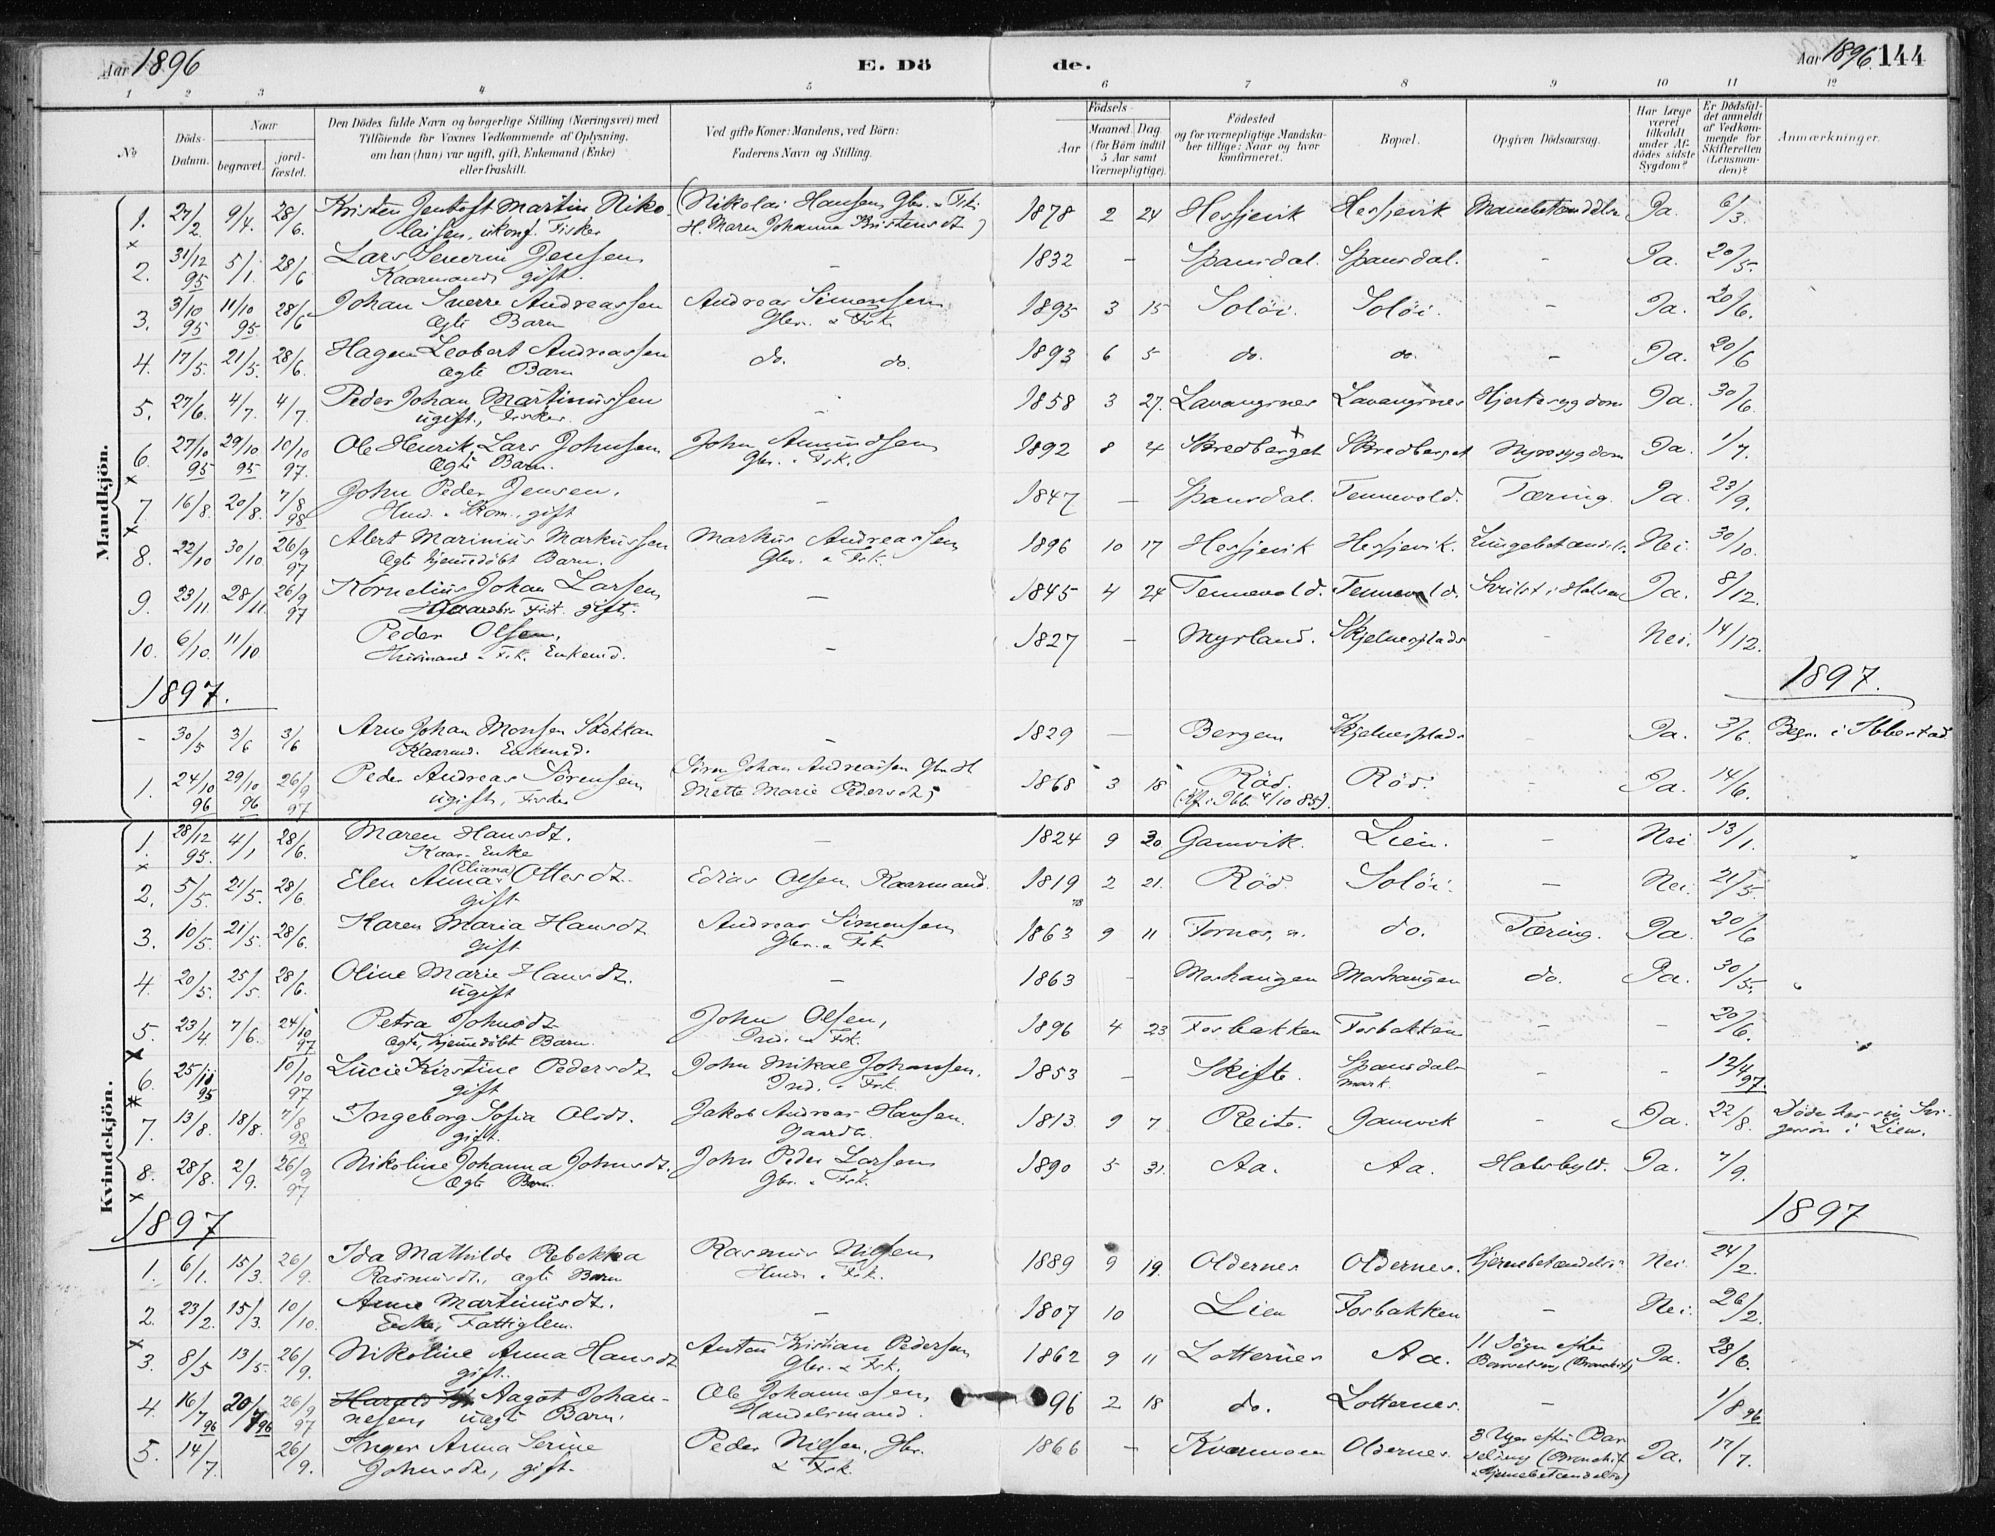 Aar 1896 E. Dö de. Aar 1896. 144
1 2 3 4 5 6 7 8 9 10 11 12
No Döds-Datum. Naar begravet. jordfæstet. Den Dödes fulde Navn og borgerlige Stilling (Næringsvei) med Tilföiende for Voxnes Vedkommende af Oplysning, om han (hun) var ugift, gift, Enkemand (Enke) eller fraskilt. Ved gifte Koner: Mandens, ved Börn: Faderens Navn og Stilling. Födsels- Aar Maaned. Dag (for Börn indtil 5 Aar samt Værnepligtige). Födested og for værnepligtige Mandskaber tillige: Naar og hvor konfirmeret. Bopæl. Opgiven Dödsaarsag. Har Læge været tilkaldt under Afdödes sidste Sygdom? Er Dödsfaldet anmeldt af Vedkommende for Skifteretten (Lensmanden)? Anmærkninger.
Mandkjön.
1. 27/2 9/4. 28/6. Kristen Jentoft Martin Niko- (Nikolai Hansen, Gbr. & Fsk. 1878 2 24 Hessjevik Hessjevik Ja. 6/3.
laisen, ukonf. Fisker H. Maren Johanna Kristensdt)
2. 31/12 95 5/1. 28/6 Lars Severin Jensen – 1832 – Spansdal. Spansdal. – Ja. 20/5.
Kaarmand, gift.
3. 3/10 95 11/10 95 28/6 Johan Sverre Andreassen Andreas Simonsen 1895 3 15 Solöi. Solöi. – Ja. 20/6.
ægte Barn Gbr. & Fsk.
4. 17/5. 21/5. 28/6. Hagen Leobert Andreassen do. do. 1893 6 5 do. do. – Ja. 20/6
ægte Barn
5. 27/6. 4/7. 4/7. Peder Johan Martinussen – 1858 3 27. Lavangsnes Lavangsnes Hjertesygdom Ja. 30/6.
ugift, Fisker
6. 27/10 95 29/10 95 10/10 97. Ole Henrik Lars Johnsen John Amundsen 1892 8 4 Skredberget Skredberget Ja. 1/7.
Ægte Barn. Gbr. & Fsk.
7. 16/8. 20/8. 7/8 98 John Peder Jensen. – 1847 – Spansdal. Tennevold. Tæring. Ja. 23/9.
gift
8. 22/10 30/10. 26/9 97 Albert Marinius Markussen Markus Andreassen 1896 10 17 Hessjevik Hessjevik. Lungebetændelse Nei. 30/10.
ægte hjemmedöbt Barn. Gbr. & Fsk.
9. 23/11 28/11. 26/9 97 Kornelius Johan Larsen – 1845 4 24 Tennevold. Tennevold. Svulst i Halsen Ja. 8/12.
Gaardbr. Fsk. gift.
10. 6/10. 11/10 Peder Olsen, – 1827 – Myrland. Skjelnesstads – Nei. 14/12.
Husmand & Fsk. Enkemd.
1897. 1897.
– 30/5 3/6 3/6 Arne Johan Monsen Stokkan – 1829 – Bergen Skjelnesstads Ja. 3/6. Begr. i Ibbestad
Kaarmd. Enkemd.
1. 24/10 96 29/10 96 26/9 97 Peder Andreas Sörensen (Sören Johan Andreassen Gbr. H 1868 3 18 Röd. Röd. – Ja. 14/6.
ugift, Fisker Mette Marie Pedersdt) 4/10 85).
Kvindekjön.
1. 28/12 95. 4/1 28/6. Maren Hansdt. – 1824 9 30 Gamvik. Lien. – Nei 13/1.
Kaar-Enke
2. 5/5. 21/5. 28/6. Elen Anna (Eliana) Ottesdt. Edias Olsen, Kaarmand. 1819 2 21. Röd. Solöi. – Nei. 21/5.
gift
3. 10/5. 21/5. 28/6. Karen Maria Hansdt Andreas Simonsen 1863 9 11 Fornes, n. do. Tæring. Ja. 20/6
gift Gbr. & Fsk.
4. 20/5. 25/5. 28/6. Oline Marie Hansdt. – 1863 – Moshaugen Moshaugen do. Ja. 30/5.
ugift
5. 23/4 7/6. 24/10 97 Petra Johnsdt John Olsen, 1896 4 23 Fosbakken Fosbakken – – 20/6.
ægte, hjemmedöbt Barn. Ind. & Fsk.
6. 25/10 95 10/10 97 Lucie Kirstine Pedersdt John Mikal Johansen. 1853 – Skifte. Spansdals – – 12/4 97.
gift Ind. & Fsk. mark.
7. 13/8. 18/8. 7/8 98. Ingeborg Sofia Olsdt. Jakob Andreas Hansen. 1813. 9 7 Reite. Gamvik – Ja. 22/8. Döde hos sin Svi-
gift. Gaardbr. gersön i Lien.
8. 28/8. 2/9. 26/9 97 Nikoline Johanna Johnsdt. John Peder Larsen 1890 5 31. Aa. Aa. Halsbyld. Ja. 7/9.
ægte Barn. Gbr. & Fsk.
1897 1897
1. 6/1. 15/3. 26/9. Ida Mathilde Rebekka Rasmus Nilsen, 1889 9 19. Oldernes Oldernes. Hjernebetændelse. Nei. 24/2.
Rasmusdt., ægte Barn Husm. & Fsk.
2. 23/2. 15/3. 10/10. Anne Martinusdt. – 1807 10 Lien Fosbakken – Nei. 26/2.
Enke, Fattiglem.
3. 8/5 13/5. 26/9. Nikoline Anna Hansdt Anton Kristian Pedersen 1862 9 11 Lotternes Aa. 11 Dögn efter Ja. 28/6.
gift. Gbr. & Fsk. Barselseng (Bronchit)
4. 16/7 96 20/7 96 26/9 97 Harald Aagot Johan- Ole Johannesen, 96 2 18 do. Lotternes. – 1/8 96
nesen uægte Barn. Handelsmand.
5. 14/7. 26/9. Inger Anna Serine Peder Nilsen, Gbr. 1866 – Kvernmoen Oldernes. 3 Uger efter Bar- Ja. 17/7.
Johnsdt, gift. & Fsk. selseng (Bronchit & Hjernebetændelse)